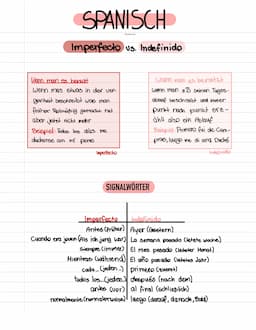 SPANISCH
Imperfecto vs. Indefinido
Wann man es benutzt
Wenn man etwas in der Ver-
gangenheit beschreibt was man
früher Regelmäßig gemacht hat
aber jetzt nicht mehr
Beispiel: Todos los días me
duchaba con mi perro
Imperfecto
Wann man es benutzt
Wenn man z.B seinen Tages-
ablauf beschreibt und immer
punkt nach punkt erz-
ählt also ein Ablauf
Beispiel: Primero fui de Com-
pras, luego me di una Ducha
Indefinido
SIGNALWÖRTER
Imperfecto Indefinido
Antes (früher) Ayer (Gestern)
Cuando era joven (Als ich jung war) La semana pasada (letzte Woche)
Siempre (immer) El mes pasado (letzter Monat)
Mientras (während) El año pasado (letztes Jahr)
cada... (jeden..) primero (zuerst)
todos los...(jeden..) después (nach dem)
antes (vor) al final (schließlich)
normalmente (normalerweise) luego (darauf, danach,